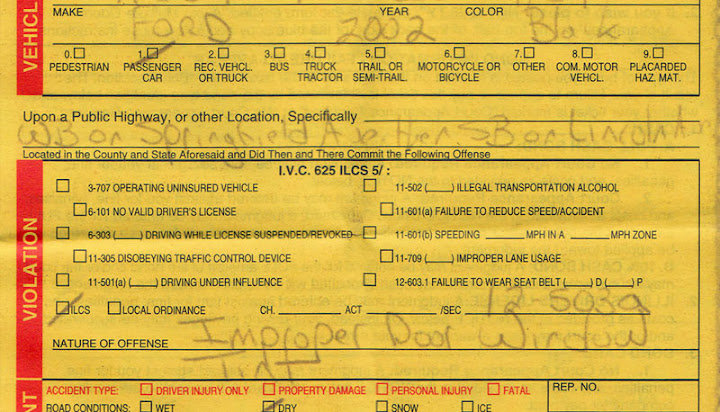 MAKE YEAR COLOR
FORD 2002 Black
VEHICL
0. 1. 2. 3. 4. 5. 6. 7. 8. 9.
PEDESTRIAN PASSENGER CAR REC. VEHCL. OR TRUCK BUS TRUCK TRACTOR TRAIL. OR SEMI-TRAIL. MOTORCYCLE OR BICYCLE OTHER COM. MOTOR VEHCL. PLACARDED HAZ. MAT.
Upon a Public Highway, or other Location, Specifically
WB on Springfield Ave then SB on Lincoln Ave
Located in the County and State Aforesaid and Did Then and There Commit the Following Offense
VIOLATION
I.V.C. 625 ILCS 5/ :
3-707 OPERATING UNINSURED VEHICLE 11-502 (____) ILLEGAL TRANSPORTATION ALCOHOL
6-101 NO VALID DRIVER'S LICENSE 11-601(a) FAILURE TO REDUCE SPEED/ACCIDENT
6-303 (____) DRIVING WHILE LICENSE SUSPENDED/REVOKED 11-601(b) SPEEDING ______ MPH IN A ______ MPH ZONE
11-305 DISOBEYING TRAFFIC CONTROL DEVICE 11-709 (____) IMPROPER LANE USAGE
11-501(a) (____) DRIVING UNDER INFLUENCE 12-603.1 FAILURE TO WEAR SEAT BELT (____) D (____) P
ILCS LOCAL ORDINANCE CH. ACT /SEC 12-503a
Improper Door Window
NATURE OF OFFENSE
Tint
ENT
ACCIDENT TYPE: DRIVER INJURY ONLY PROPERTY DAMAGE PERSONAL INJURY FATAL REP. NO.
ROAD CONDITIONS: WET DRY SNOW ICE